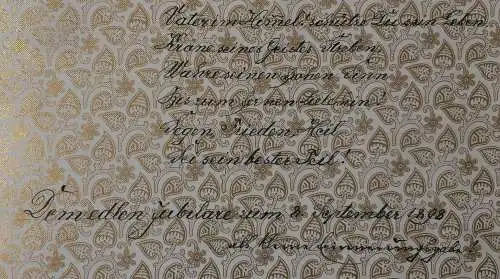 Vater im Himmel! schütze Du sein Leben
Kröne seines Geistes Streben,
Wahre seinen hohen Sinn
Bis zum fernen Ziele hin!
Segen, Frieden, Heil
Sei sein bester Teil!
Dem edlen Jubilare zum 8. September 1898
als kleine Erinnerungsgabe!